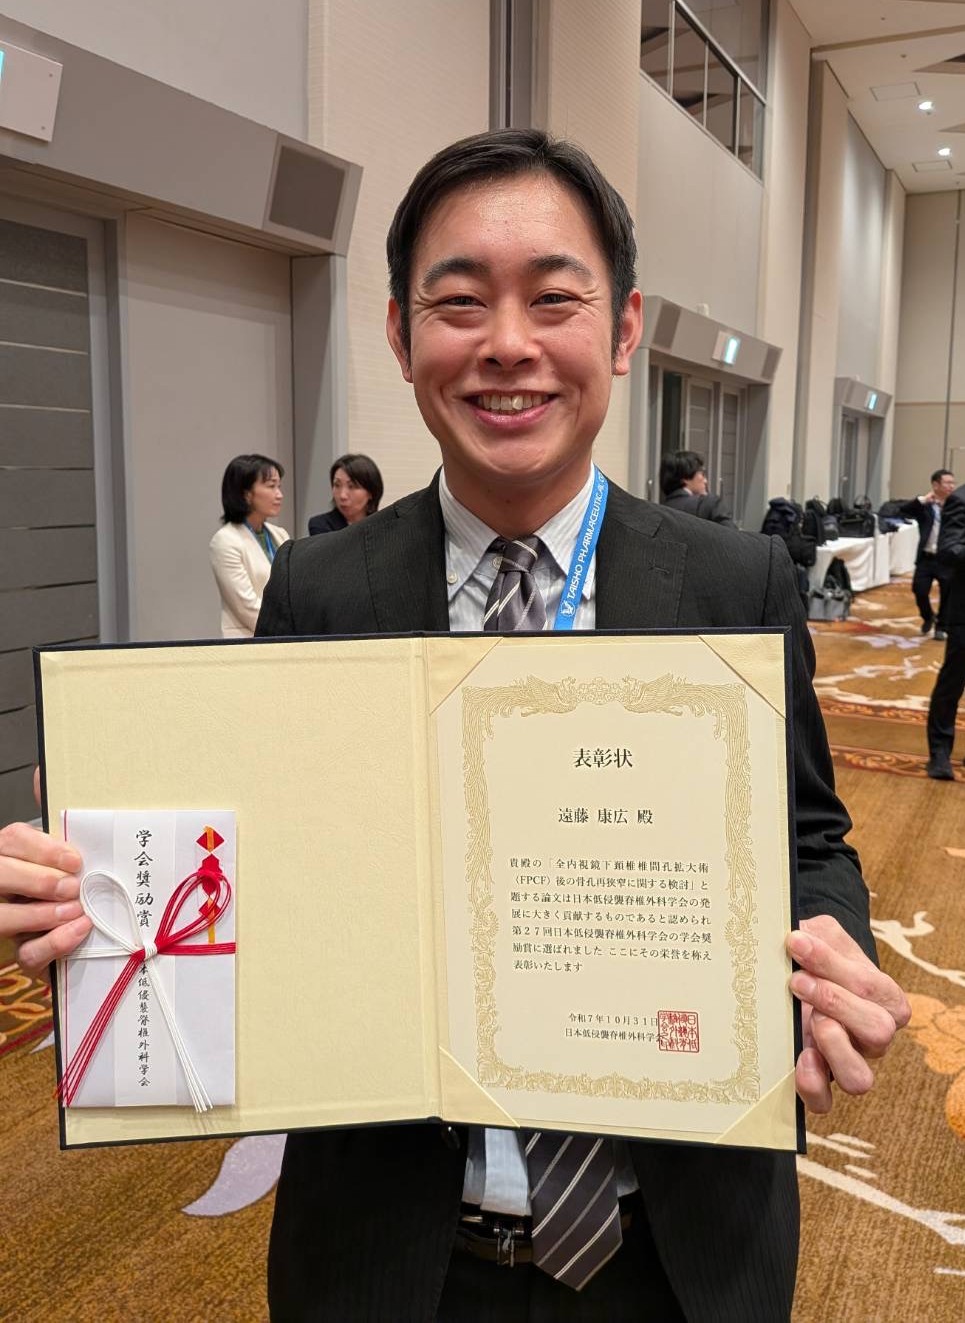 TAISHO PHARMACEUTICAL
学会奨励賞
本低侵襲脊椎外科学会
表彰状
遠藤 康広 殿
貴殿の「全内視鏡下頚椎椎間孔拡大術
（FPCF）後の骨孔再狭窄に関する検討」と
題する論文は日本低侵襲脊椎外科学会の発
展に大きく貢献するものであると認められ
第27回日本低侵襲脊椎外科学会の学会奨
励賞に選ばれました ここにその栄誉を称え
表彰いたします
令和7年10月31日
日本低侵襲脊椎外科学会